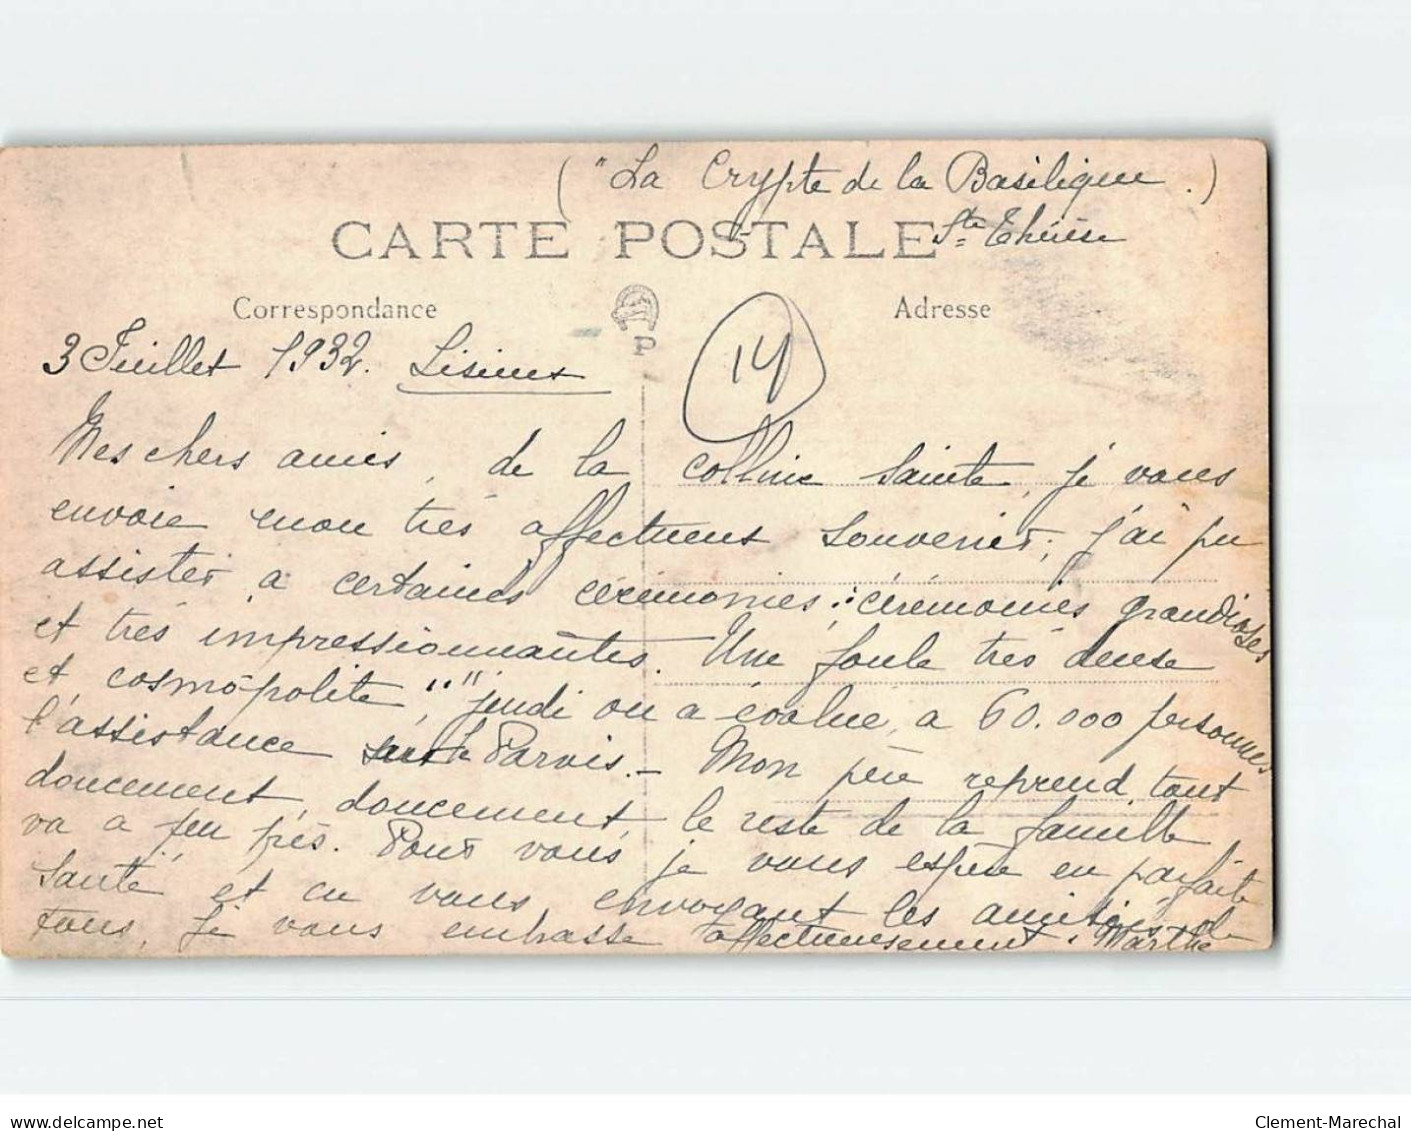 ( "La Crypte de la Basilique . )
Ste Thérèse
CARTE POSTALE
Correspondance
Adresse
P
14
3 Juillet 1932. Lisieux
Mes chers amis, de la colline Sainte, je vous
envoie mon très affectueux souvenir, j'ai pu
assister a certaines cérémonies, cérémonies grandioses
et très impressionnantes. Une foule très dense
et cosmopolite, "" jeudi on a évalué a 60.000 personnes
l'assistance sur le Parvis. - Mon père reprend tout
doucement, doucement, le reste de la famille
va a peu près. Pour vous je vous espère en parfaite
santé et en vous envoyant les amitiés de
tous, je vous embrasse affectueusement. Marthe
www.delcampe.net
Clement-Marechal